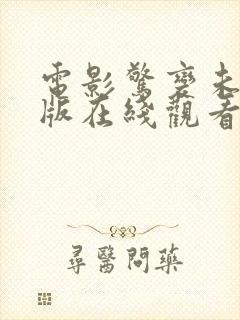 電影驚變未
版在綫觀看
尋醫問藥